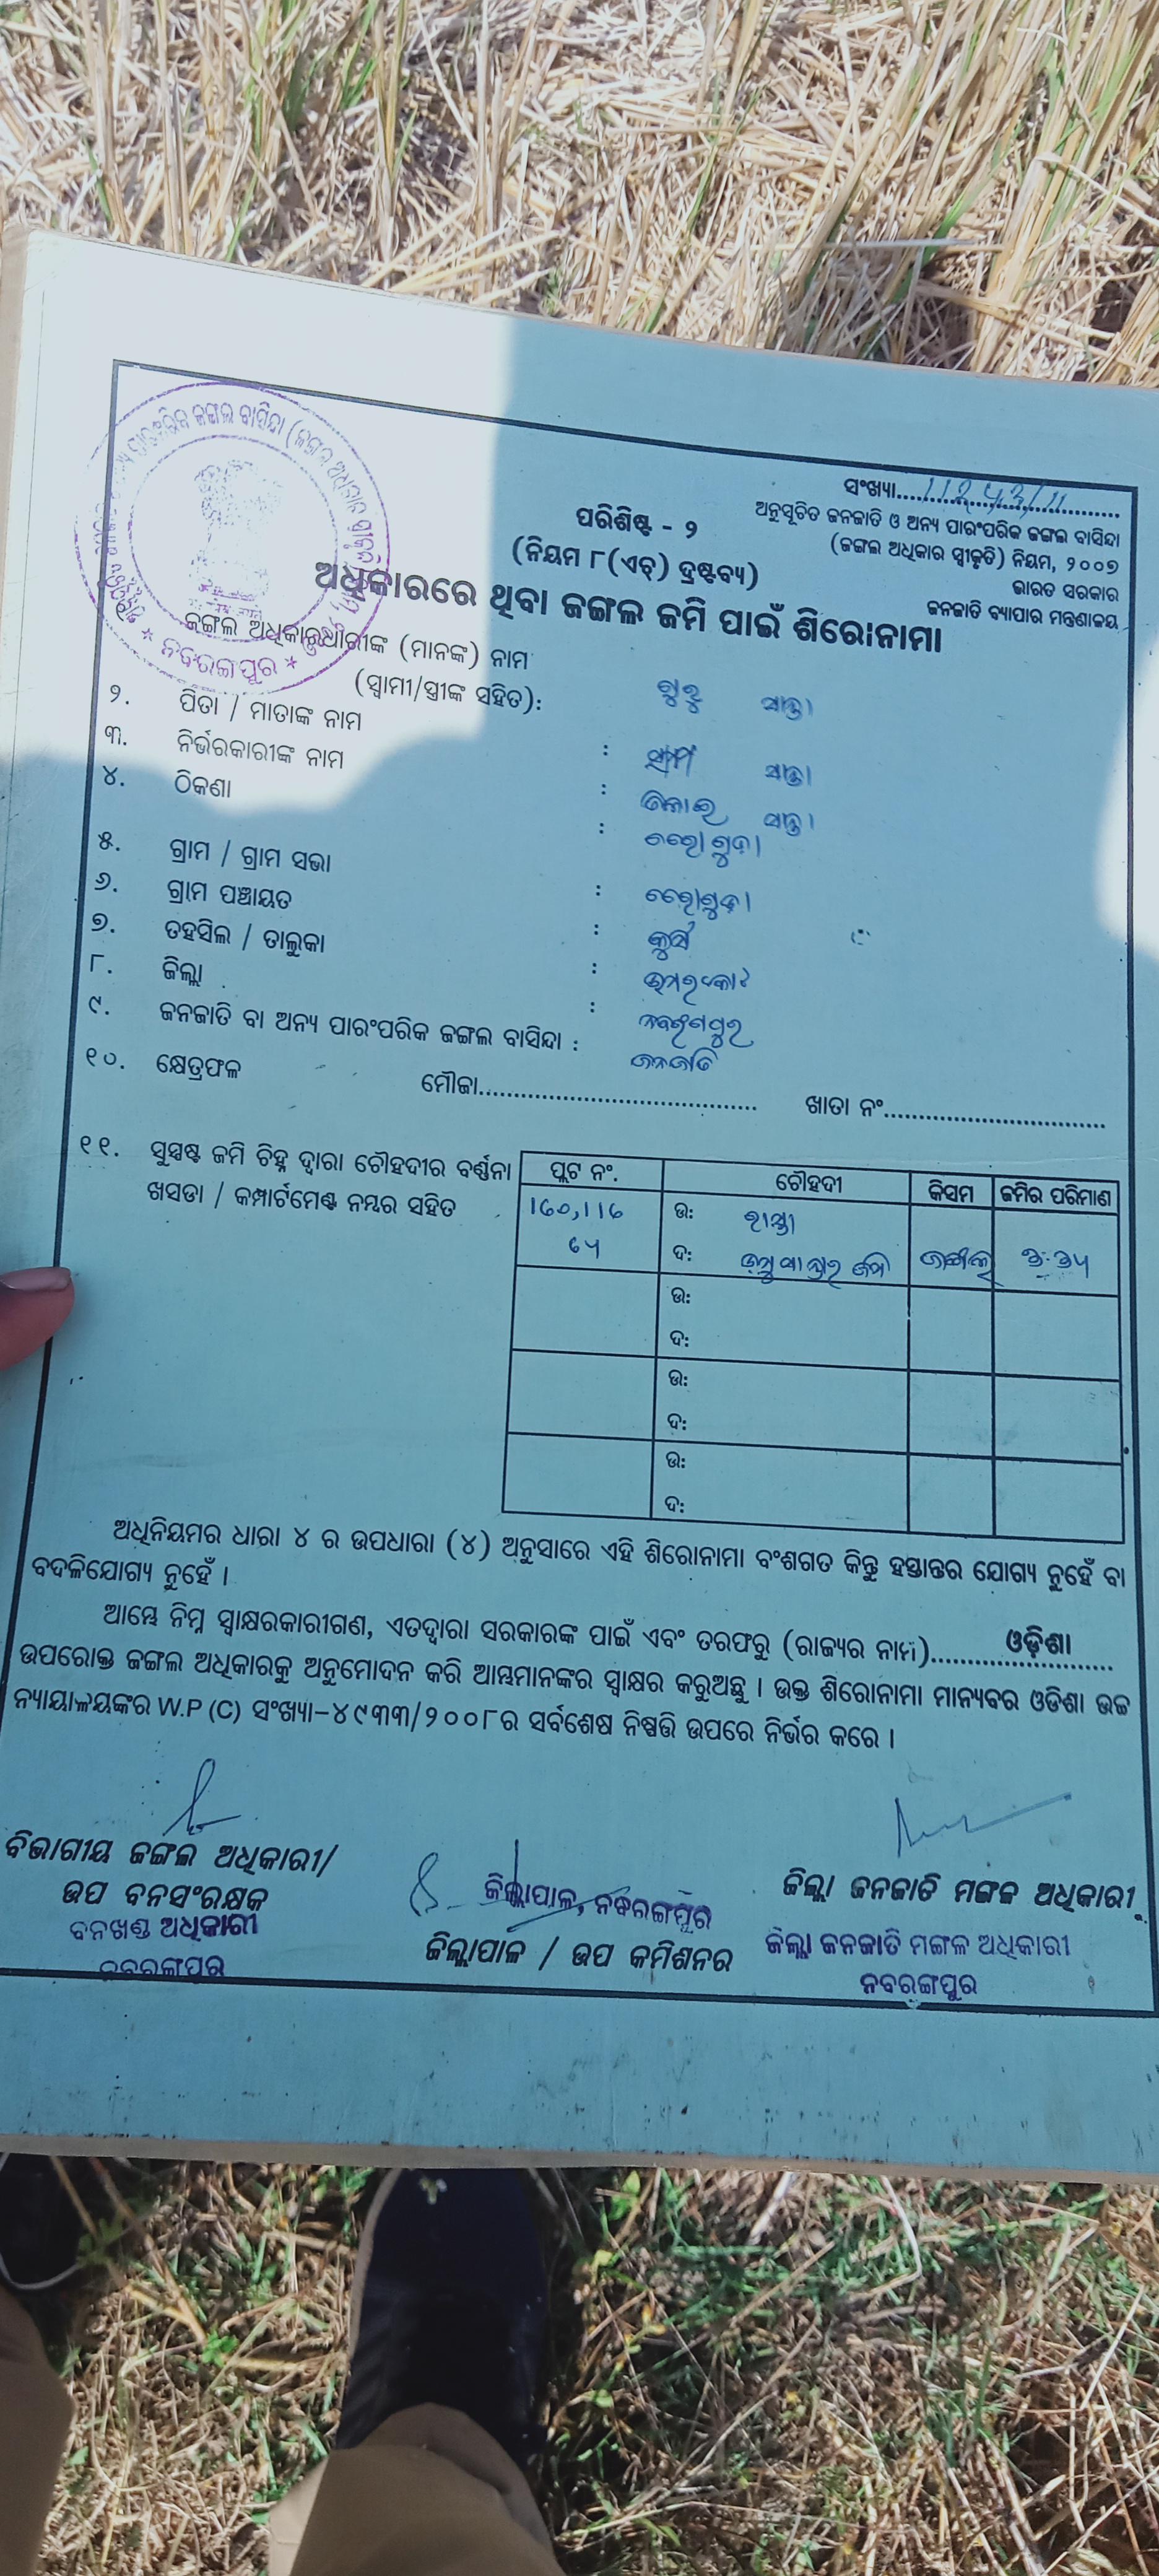 ପାରଂପରିକ ଜଙ୍ଗଲ ବାସିନ୍ଦା (ଜଙ୍ଗଲ ଅଧିକାର
* ନବରଙ୍ଗପୁର *
ସଂଖ୍ୟା
ଅନୁସୂଚିତ ଜନଜାତି ଓ ଅନ୍ୟ ପାରଂପରିକ ଜଙ୍ଗଲ ବାସିନ୍ଦା
(ଜଙ୍ଗଲ ଅଧିକାର ସ୍ୱୀକୃତି) ନିୟମ, ୨୦୦୭
ଭାରତ ସରକାର
ଜନଜାତି ବ୍ୟାପାର ମନ୍ତ୍ରଣାଳୟ
ପରିଶିଷ୍ଟ - ୨
(ନିୟମ ୮(ଏଚ୍) ଦ୍ରଷ୍ଟବ୍ୟ)
ଅଧିକାରରେ ଥିବା ଜଙ୍ଗଲ ଜମି ପାଇଁ ଶିରୋନାମା
ଜଙ୍ଗଲ ଅଧିକାରଧାରୀଙ୍କ (ମାନଙ୍କ) ନାମ
(ସ୍ୱାମୀ/ସ୍ତ୍ରୀଙ୍କ ସହିତ):
୨. ପିତା / ମାତାଙ୍କ ନାମ :
୩. ନିର୍ଭରକାରୀଙ୍କ ନାମ :
୪. ଠିକଣା :
୫. ଗ୍ରାମ / ଗ୍ରାମ ସଭା :
୬. ଗ୍ରାମ ପଞ୍ଚାୟତ :
୭. ତହସିଲ / ତାଲୁକା : ଉମରକୋଟ
୮. ଜିଲ୍ଲା : ନବରଙ୍ଗପୁର
୯. ଜନଜାତି ବା ଅନ୍ୟ ପାରଂପରିକ ଜଙ୍ଗଲ ବାସିନ୍ଦା : ଜନଜାତି
୧୦. କ୍ଷେତ୍ରଫଳ ମୌଜା........ ଖାତା ନଂ........
୧୧. ସୁସ୍ପଷ୍ଟ ଜମି ଚିହ୍ନ ଦ୍ୱାରା ଚୌହଦୀର ବର୍ଣ୍ଣନା
ଖସଡା / କମ୍ପାର୍ଟମେଣ୍ଟ ନମ୍ବର ସହିତ
ପ୍ଲଟ ନଂ. ଚୌହଦୀ କିସମ ଜମିର ପରିମାଣ
ଉ: ରାସ୍ତା
ଦ: ଜଙ୍ଗଲ
ଉ:
ଦ:
ଉ:
ଦ:
ଉ:
ଦ:
ଅଧିନିୟମର ଧାରା ୪ ର ଉପଧାରା (୪) ଅନୁସାରେ ଏହି ଶିରୋନାମା ବଂଶଗତ କିନ୍ତୁ ହସ୍ତାନ୍ତର ଯୋଗ୍ୟ ନୁହେଁ ବା
ବଦଳିଯୋଗ୍ୟ ନୁହେଁ ।
ଆମ୍ଭେ ନିମ୍ନ ସ୍ୱାକ୍ଷରକାରୀଗଣ, ଏତଦ୍ୱାରା ସରକାରଙ୍କ ପାଇଁ ଏବଂ ତରଫରୁ (ରାଜ୍ୟର ନାମ)........ଓଡ଼ିଶା........
ଉପରୋକ୍ତ ଜଙ୍ଗଲ ଅଧିକାରକୁ ଅନୁମୋଦନ କରି ଆମ୍ଭମାନଙ୍କର ସ୍ୱାକ୍ଷର କରୁଅଛୁ । ଉକ୍ତ ଶିରୋନାମା ମାନ୍ୟବର ଓଡିଶା ଉଚ୍ଚ
ନ୍ୟାୟାଳୟଙ୍କର W.P (C) ସଂଖ୍ୟା-୪୯୩୩/୨୦୦୮ର ସର୍ବଶେଷ ନିଷ୍ପତ୍ତି ଉପରେ ନିର୍ଭର କରେ ।
ବିଭାଗୀୟ ଜଙ୍ଗଲ ଅଧିକାରୀ/
ଉପ ବନସଂରକ୍ଷକ
ବନଖଣ୍ଡ ଅଧିକାରୀ
ନବରଙ୍ଗପୁର
ଜିଲ୍ଲାପାଳ, ନବରଙ୍ଗପୁର
ଜିଲ୍ଲାପାଳ / ଉପ କମିଶନର
ଜିଲ୍ଲା ଜନଜାତି ମଙ୍ଗଳ ଅଧିକାରୀ
ଜିଲ୍ଲା ଜନଜାତି ମଙ୍ଗଳ ଅଧିକାରୀ
ନବରଙ୍ଗପୁର